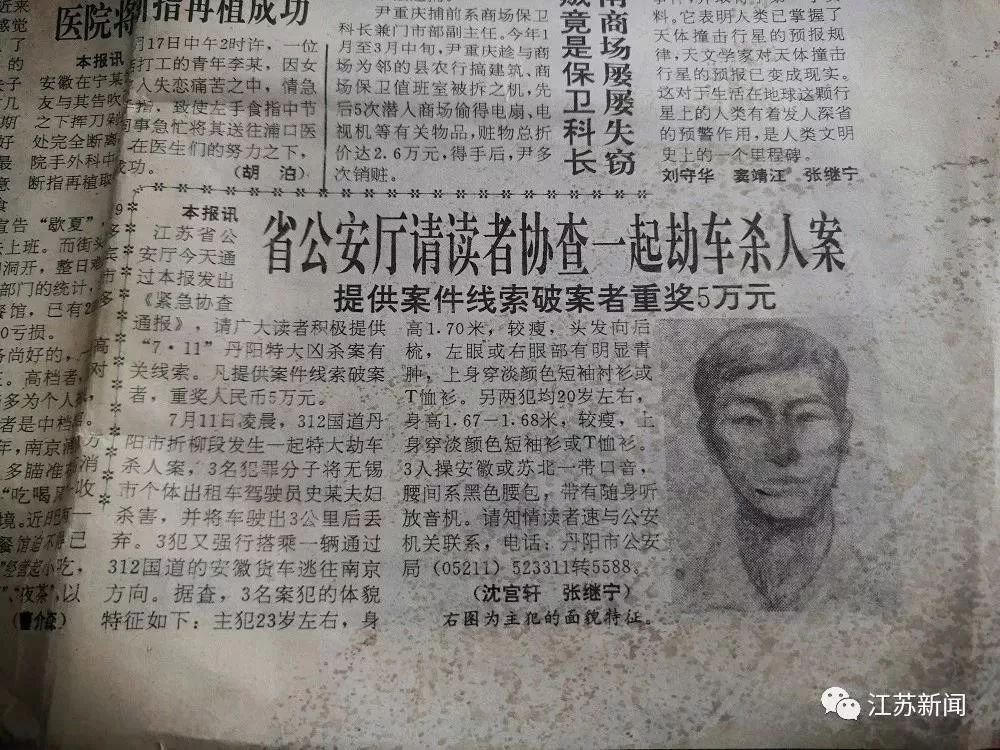 医院将
断指再植成功
本报讯
月17日中午2时许，一位
安徽在宁某
打工的青年李某，因女
友与其告收
人失恋痛苦之中，情急
之下挥刀剁
致使左手食指中节
处完全断离
同事急忙将其送往浦口医
院手外科中
在医生们的努力之下，
断指再植取
成功。
（胡 泊）
尹重庆捕前系商场保卫
科长兼门市部副主任。今年1
月至3月中旬，尹重庆趁与商
场为邻的县农行搞建筑、商
场保卫值班室被拆之机，先
后5次潜人商场偷得电扇、电
视机等有关物品，赃物总折
价达2.6万元，得手后，尹多
次销赃。
商场屡屡失窃
贼竟是保卫科长
料。它表明人类已掌握了
天体撞击行星的预报规
律，天文学家对天体撞击
行星的预报已变成现实。
这对于生活在地球这颗行
星上的人类有着发人深省
的预警作用，是人类文明
史上的一个里程碑。
刘守华 窦靖江 张继宁
省公安厅请读者协查一起劫车杀人案
提供案件线索破案者重奖5万元
本报讯
江苏省公
安厅今天通
过本报发出
《紧急协查
通报》，请广大读者积极提供
“7·11”丹阳特大凶杀案有
关线索。凡提供案件线索破案
者，重奖人民币5万元。
7月11日凌晨，312国道丹
阳市折柳段发生一起特大劫车
杀人案，3名犯罪分子将无锡
市个体出租车驾驶员史某夫妇
杀害，并将车驶出3公里后丢
弃。3犯又强行搭乘一辆通过
312国道的安徽货车逃往南京
方向。据查，3名案犯的体貌
特征如下：主犯23岁左右，身
高1.70米，较瘦，头发向后
梳，左眼或右眼部有明显青
肿，上身穿淡颜色短袖衬衫或
T恤衫。另两犯均20岁左右，
身高1.67－1.68米，较瘦，上
身穿淡颜色短袖衫或T恤衫。
3人操安徽或苏北一带口音，
腰间系黑色腰包，带有随身听
放音机。请知情读者速与公安
机关联系，电话：丹阳市公安
局（05211）523311转5588。
（沈宫轩 张继宁）
右图为主犯的面貌特征。
宣告“歇夏”，
上班。而街头
洞开，整日
部门的统计，
餐馆，已有2
0亏损。
尚好的，一
高档者，
多为个人
者是中档
年，南京
多瞄准
“吃喝
境。近
“夜茶”，以
江苏新闻